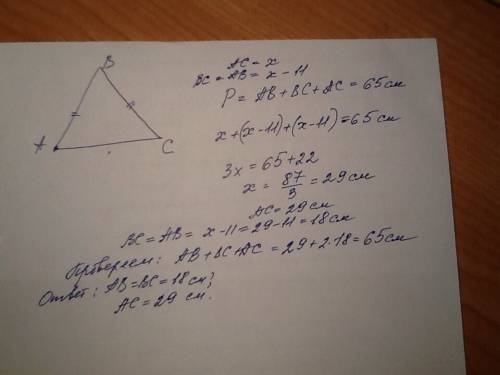 B
A
C
AC = x
BC = AB = x - 11
P = AB + BC + AC = 65 см
x + (x - 11) + (x - 11) = 65 см
3x = 65 + 22
x = 87/3 = 29 см
AC = 29 см
BC = AB = x - 11 = 29 - 11 = 18 см
Проверяем: AB + BC + AC = 29 + 2·18 = 65 см
Ответ: AB = BC = 18 см;
AC = 29 см.